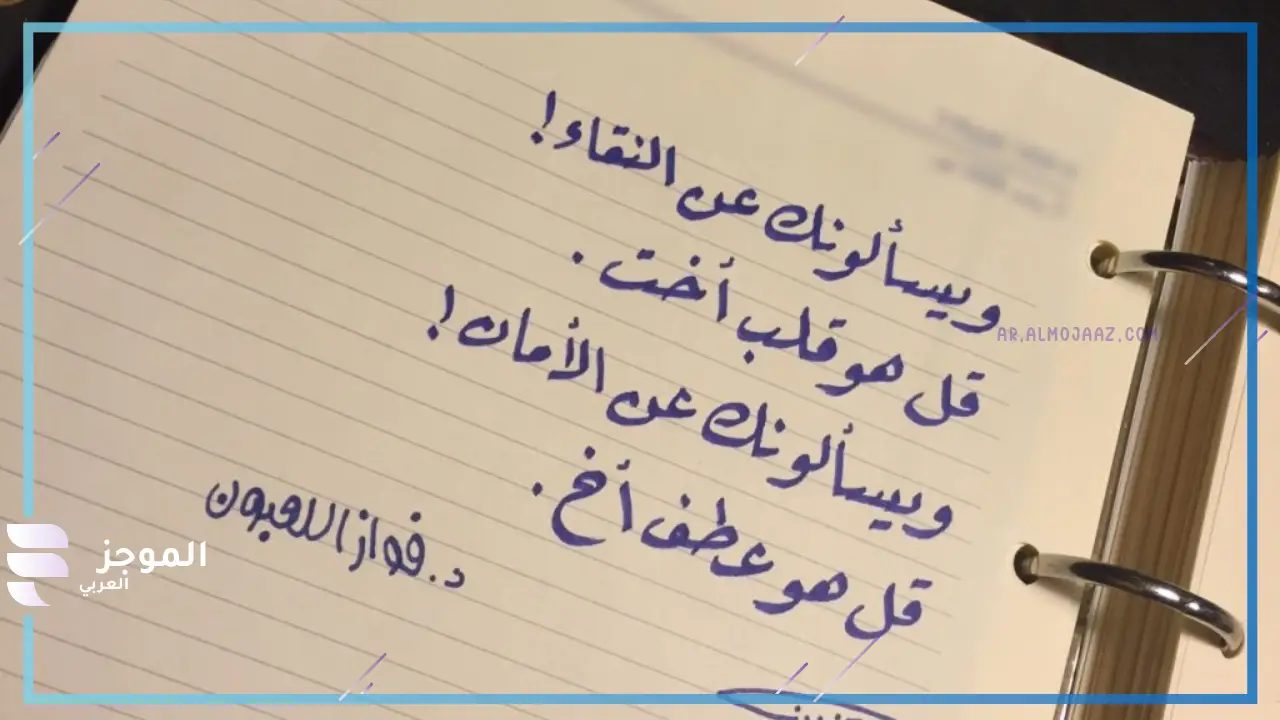 ويسألونك عن النقاء!
قل هو قلب أخت.
ويسألونك عن الأمان!
قل هو عطف أخ.
د. فواز اللعبون
AR.ALMOJAAZ.COM
الموجز
العربي